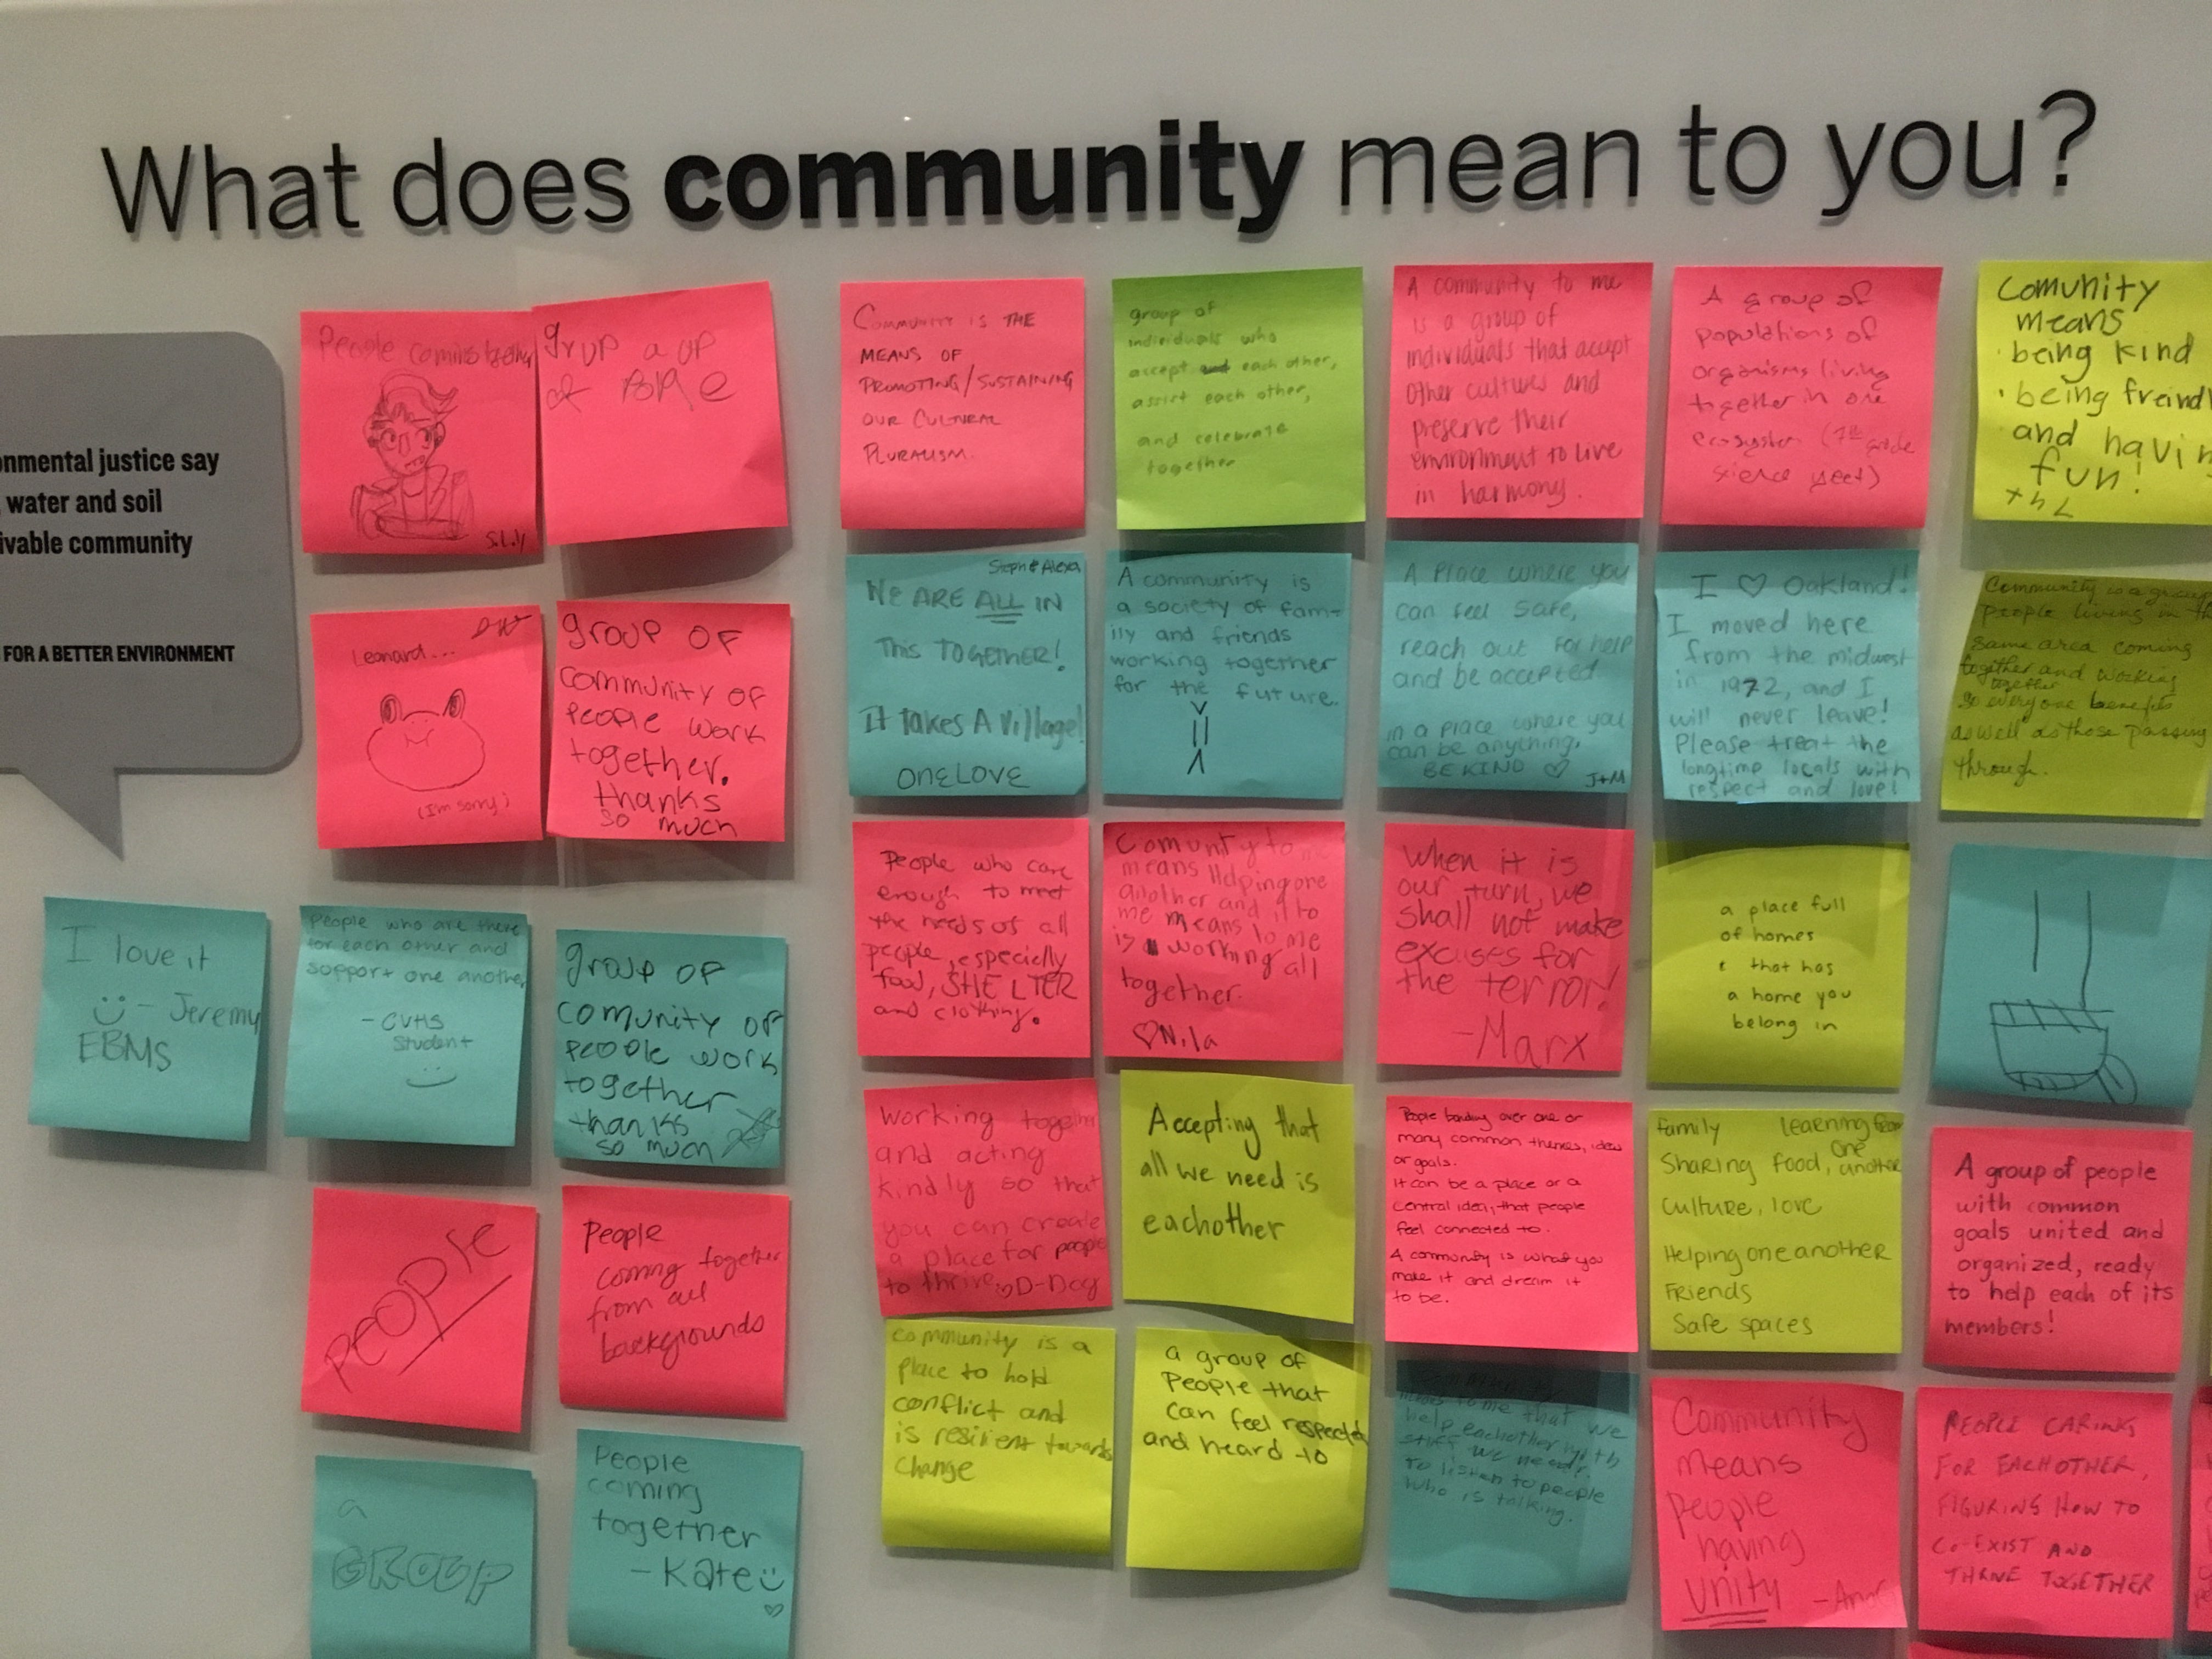 What does community mean to you?
nmental justice say
water and soil
ivable community
FOR A BETTER ENVIRONMENT
People coming
S.Lily
grup a up
of
COMMUNITY IS THE
MEANS OF
PROMOTING/SUSTAINING
OUR CULTURAL
PLURALISM.
group of
individuals who
accept each other,
assist each other,
and celebrate
together
A community to me
is a group of
individuals that accept
other cultures and
preserve their
environment to live
in harmony.
A group of
populations of
organisms living
together in one
ecosystem (7th grade
science yeet)
Comunity
means
being kind
being freindl
and havin
fun!
Leonard...
(I'm sorry)
group of
community of
people work
together.
thanks
so much
Steph & Alexa
We ARE ALL IN
This TOGETHER!
It takes A village!
ONE LOVE
A community is
a society of fam-
ily and friends
working together
for the future.
A place where you
can feel safe,
reach out for help
and be accepted.
in a place where you
can be anything,
BE KIND ♡ J+M
I ♡ Oakland!
I moved here
from the midwest
in 1972, and I
will never leave!
Please treat the
longtime locals with
respect and love!
Community is a group
people living in th
same area coming
together and working
together
so everyone benefits
as well as those passing
through.
I love it
- Jeremy
EBMS
People who are there
for each other and
support one another
- CVHS
Student
group of
comunity of
people work
together
thanks
so much
People who care
enough to meet
the needs of all
people, especially
food, SHELTER
and clothing.
Comunty to
means Helping one
another and it to
me means to me
is working all
together.
♡Nila
When it is
our turn, we
shall not make
excuses for
the terror!
-Marx
a place full
of homes
that has
a home you
belong in
PEOPLE
People
coming together
from all
backgrounds
working together
and acting
kindly so that
you can create
a place for people
to thrive D-Dog
Accepting that
all we need is
eachother
People bonding over one or
many common themes, ideas
or goals.
It can be a place or a
central idea, that people
feel connected to.
A community is what you
make it and dream it
to be.
family learning from
one
Sharing food, another
culture, love
Helping one another
Friends
Safe spaces
A group of people
with common
goals united and
organized, ready
to help each of its
members!
a
GROUP
People
coming
together
- Kate
community is a
place to hold
conflict and
is resilient towards
change
a group of
People that
can feel respected
and heard to
means to me that we
help eachother with
stuff we need,
to listen to people
who is talking.
Community
means
people
having
unity
PEOPLE CARING
FOR EACHOTHER,
FIGURING HOW TO
CO-EXIST AND
THRIVE TOGETHER